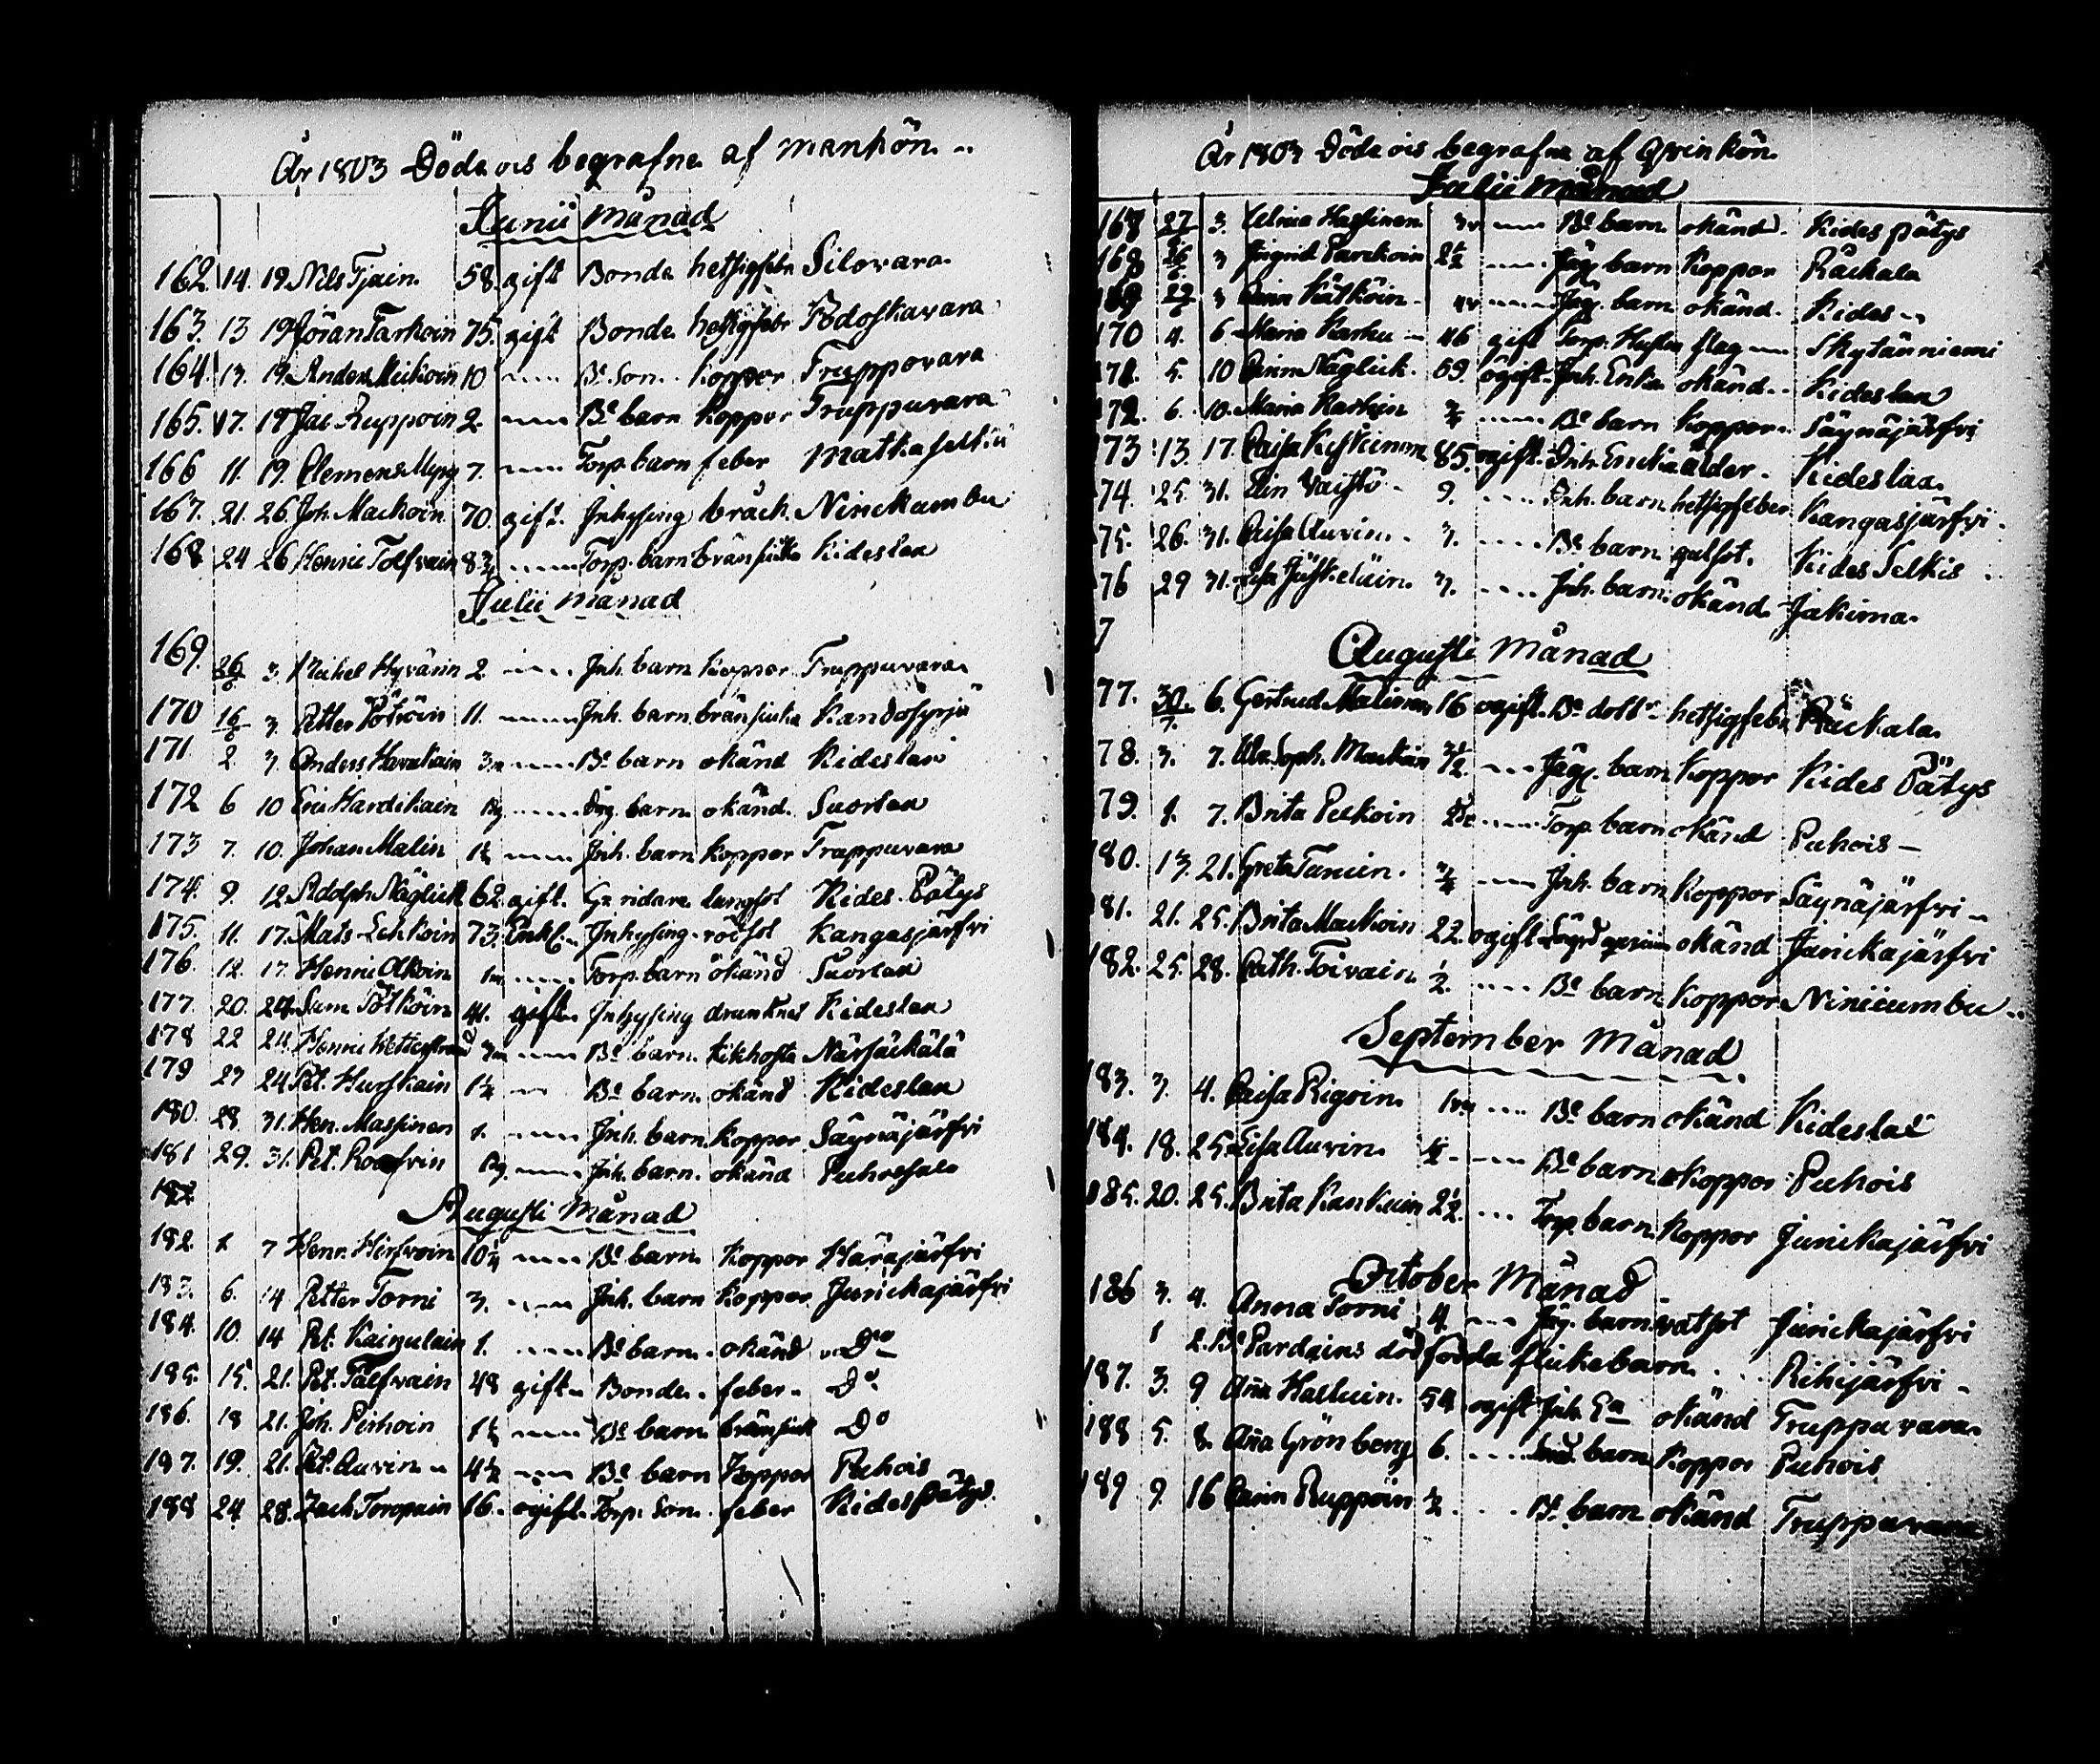 År 1803 Döde ois begrafne af mankön
Junii Månad
162 14. 19. Nils Tjain. 58. gift Bonde hetsigfebr Silovara
163. 13 19 Jöran Tarkoin 75. gift Bonde hetsigfebr Podoskavara
164. 13. 19. Anders Mickoin 10 Bd. Son. Koppor Truppovara
165. 17. 19 Jac Ruppoin 2. Bd barn Koppor Truppuvara
166 11. 19. Clemens Myry 7. Torp. barn feber Matkaselkiä
167. 21. 26 Joh. Mackoin 70. gift. Inhysing bråck. Ninickumbu
168 24 26 Henric Tolfvain 8 3/4 Torp. barn bränsiuka Kideslax
Julii Månad
169. 26/6 3. Michel Hyvärin 2 Inh. barn Koppor Truppuvara
170 16/6 3. Petter Pötröin 11. Inh. barn bränsiuka Kandosyrjä
171. 2 3. Anders Havukain 3 Bd barn okänd Kideslax
172 6 10 Eric Hardikain barn okänd. Suorlax
173 7. 10. Johan Malin Inh. barn Koppor Truppuvara
174. 9. 12. Adolph Näglick 62. gift. ridare lungsot Kides Pätys
175. 11. 17. Mats Lehkoin 73. Enkl. Inhysing rödsot Kangasjärfvi
176. 12. 17. Henric Akoin Torp. barn okänd Suorlax
177. 20. 24. Sam Pötköin 41. gift Inhysing drunknad Kideslax
178 22 24. Henric Bd barn. kikhosta Närsäckälä
179 23 24 Pet. Hurskain Bd barn. okänd Kideslax
180. 28. 31. Hen. Massinen 1. Inh. barn. Koppor Säynäjärfvi
181 29. 31. Pet. Inh. barn. okänd Puhossalo
182
Augusti Månad
182. 1 7 Henr. Hirfvoin 10 1/4 Bd barn. Koppor Harajärfvi
183. 6. 14 Petter Torni 3. Inh. barn Koppor Junickajärfvi
184. 10. 14 Pet. Kainulain 1. Bd barn. okänd Do
185. 15. 21. Pet. Talfvain 48 gift Bonde. feber Do
186. 18 21. Joh. Pirhoin Bd barn bränsiuk Do
187. 19. 21. Pet. Auvin 4 1/2 Bd barn Koppor Puhois
188 24. 28. Zach Toropain 16. ogift. Torp. Son. feber Kides Pätys
År 1803 Döde ois begrafne af Qvinkön
Julii Månad
168 27 3. Helena Hassinen Bd. barn okänd. Kides pätys
168 26/6 3 Ingrid Parckoin 2 1/2 barn Koppor Räckala
169 29/6 3 Kätköin barn okänd. Kides
170 4. 6 Maria Karhu 46 gift Torp. Hustru slag Skytänniemi
171. 5. 10 Näglick. 59. ogift. Inh. Enka okänd Kideslax
172. 6. 10. Maria Bd barn Koppor Säynäjärfvi
73 13. 17. Caisa Kiskinen 85. ogift. Inh. Encka ålder. Kideslax
74. 25. 31. Elin Vaistö 9. Inh. barn hetsigfeber Kangasjärfvi
75. 26. 31. Caisa Auvin. 3. Bd barn gulsot. Kides Selkis
76 29 31. Lisa Jäskeläin. 3. Inh. barn okänd Jakima
7
Augusti Månad
77. 30/7. 6. Gertrud Malinen 16 ogift. Bd dottr hetsigfebr Räckala
78. 3. 7. Ulr. Soph. Mackoin 3/2. barn Koppor Kides Pätys
79. 1. 7. Brita Pelkoin Torp. barn okänd Puhois
180. 13. 21. Greta Tanuin. 3/4 Inh. barn Koppor Säynäjärfvi
181. 21. 25. Brita Mackoin 22. ogift okänd Junickajärfvi
182. 25. 28. Cath. Toivain 1/2. Bd barn Koppor Niniicumbu
September Månad
183. 3. 4. Caisa Rigoin Bd barn okänd Kideslax
184. 18. 25 Lisa Auvin. Bd barn Koppor Puhois
185. 20. 25. Brita Kankuin 2 1/2. Torp. barn Koppor Junickajärfvi
October Månad
186 3. 4. Anna Torni 4. barn vatsot Junickajärfvi
1 2. Bd Pardains död födda flickebarn. Rihijärfvi
187. 3. 9 Aña Halluin. 54. ogift Inh. Ea okänd Truppuvara
188 5. 8. Aña Grönberg 6. barn Koppor Puhois
189 9. 16 Carin Ruppoin 1/2 Bd. barn okänd Truppuvara